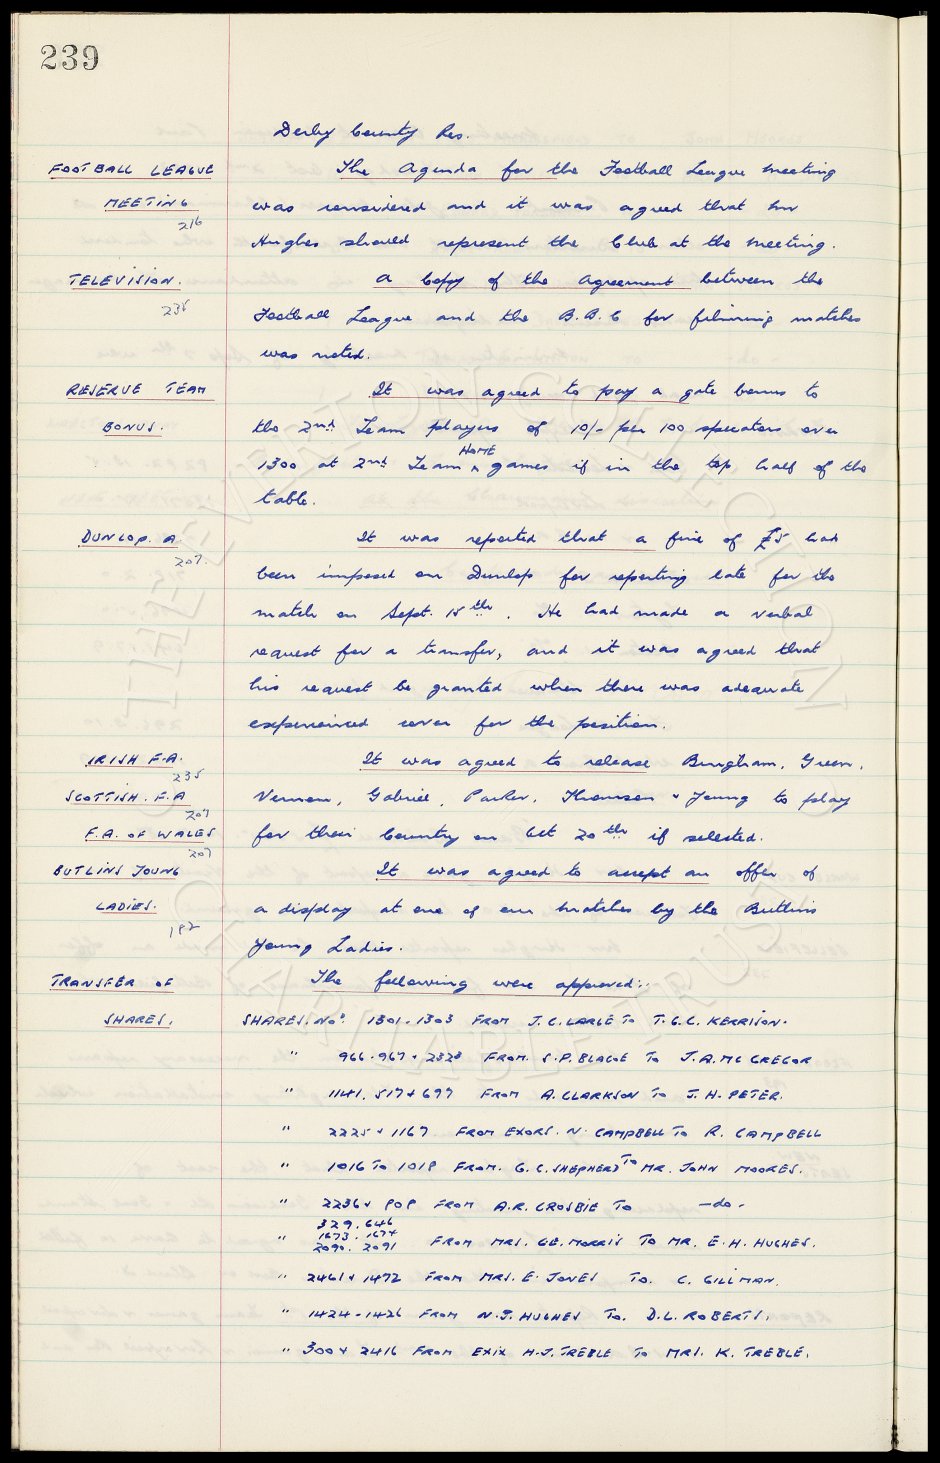 239
Derby County Res.
FOOTBALL LEAGUE The Agenda for the Football League meeting
MEETING was considered and it was agreed that Mr
216
Hughes should represent the Club at the meeting.
TELEVISION. A Copy of the Agreement between the
235
Football League and the B.B.C for filming matches
was noted.
RESERVE TEAM It was agreed to pay a gate bonus to
BONUS. the 2nd Team players of 10/- per 100 spectators over
HOME
1300 at 2nd Team ^ games if in the top half of the
table.
DUNLOP. A. It was reported that a fine of £5 had
207.
been imposed on Dunlop for reporting late for the
match on Sept. 15th. He had made a verbal
request for a transfer, and it was agreed that
his request be granted when there was adequate
experienced cover for the position.
IRISH F.A. It was agreed to release Bingham, Green,
235
SCOTTISH. F.A Vernon, Gabriel, Parker, Thomson & Young to play
207
F.A. OF WALES for their Country on Oct 20th if selected.
207
BUTLINS YOUNG It was agreed to accept an offer of
LADIES. a display at one of our matches by the Butlins
192
Young Ladies.
TRANSFER OF The following were approved:.
SHARES. SHARES. Nos. 1301-1303 FROM J.C. LARGE TO T.G.C. KERRISON.
" 966-967 & 2328 FROM. S.P. BLAGOE TO J.A. MC GREGOR
" 1141. 517 & 697 FROM A. CLARKSON TO J.H. PETER.
" 2225 & 1167 FROM EXORS. N. CAMPBELL TO R. CAMPBELL
" 1016 TO 1019 FROM. G.C. SHEPHERD TO MR. JOHN MOORES.
" 2236 & 909 FROM A.R. CROSBIE TO -do-
329. 646
" 1673. 1674 FROM MRS. G.E. MORRIS TO MR. E.H. HUGHES.
2090. 2091
" 2461 & 1472 FROM MRS. E. JONES TO. C. GILLMAN.
" 1424-1426 FROM N.J. HUGHES TO. D.L. ROBERTS.
" 300 & 2416 FROM EXIX H.J. TREBLE TO MRS. K. TREBLE.
THE EVERTON COLLECTION
CHARITABLE TRUST